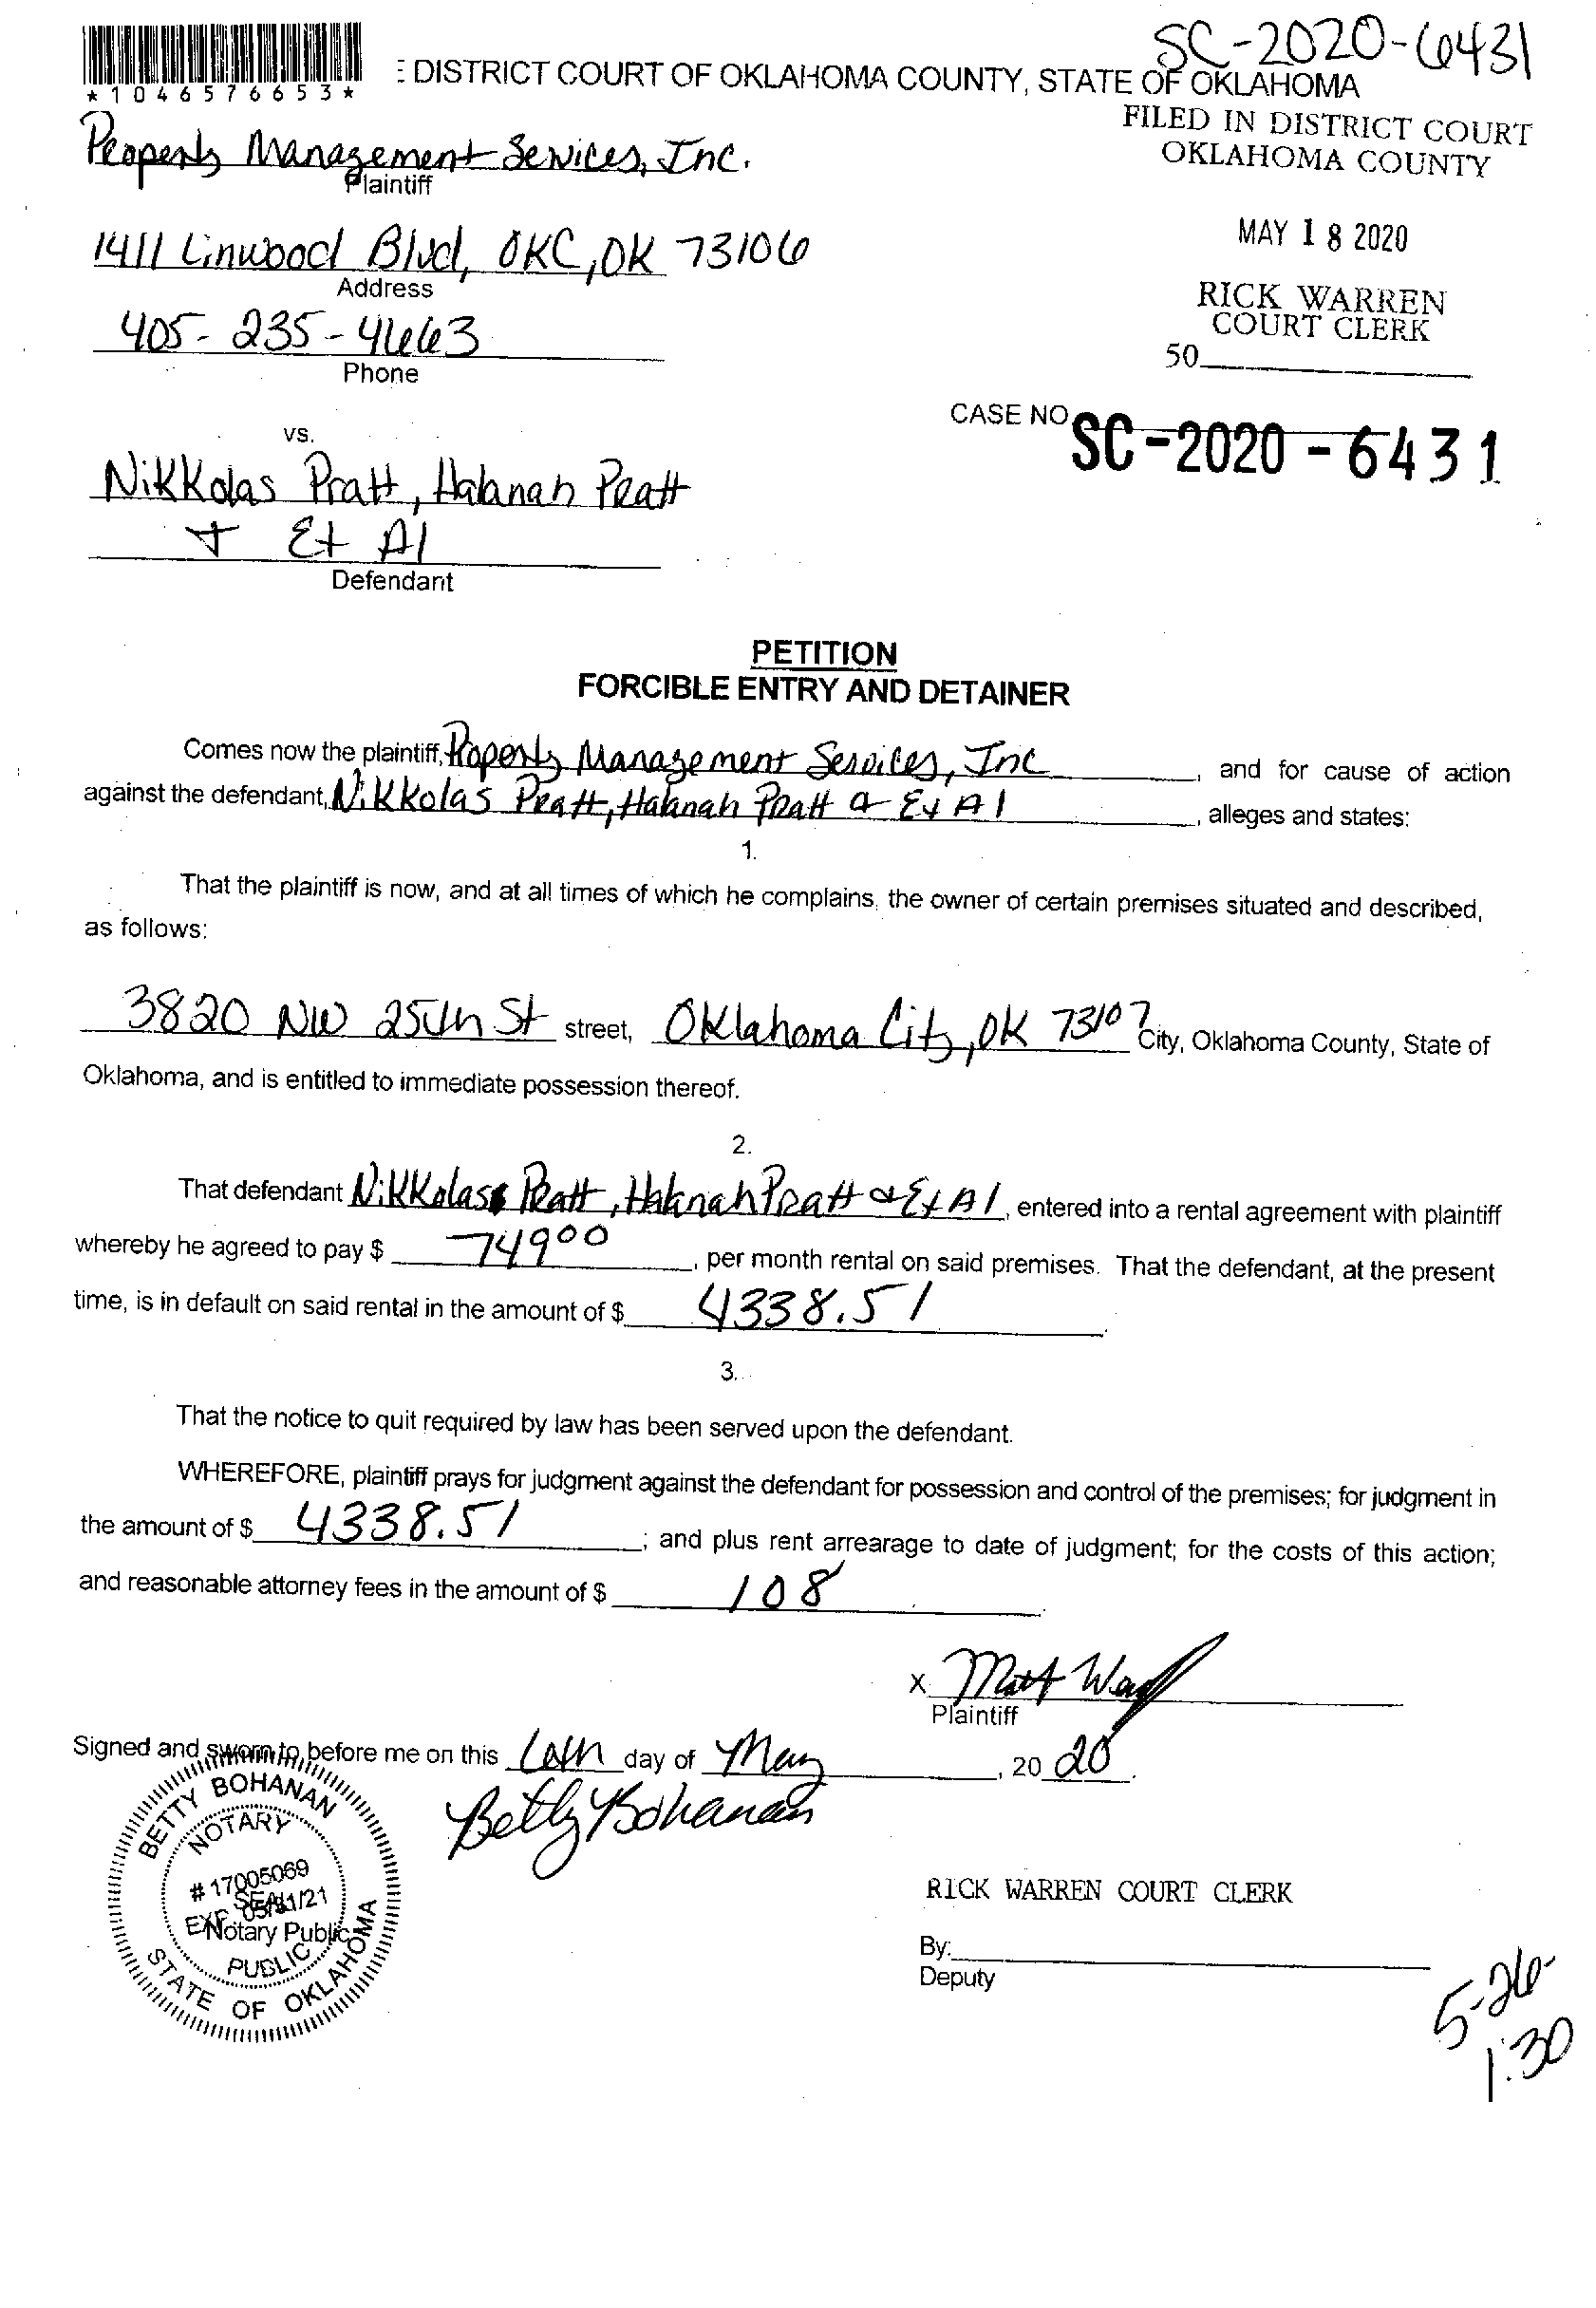 SC-2020-6431
*1046576653*
DISTRICT COURT OF OKLAHOMA COUNTY, STATE OF OKLAHOMA
FILED IN DISTRICT COURT
OKLAHOMA COUNTY
Property Management Services, Inc.
Plaintiff
MAY 18 2020
1411 Linwood Blvd, OKC, OK 73106
Address
RICK WARREN
COURT CLERK
405-235-4663
Phone
50
CASE NO. SC-2020-6431
vs.
Nikkolas Pratt, Halanah Pratt
+ Et Al
Defendant
PETITION
FORCIBLE ENTRY AND DETAINER
Comes now the plaintiff, Property Management Services, Inc, and for cause of action
against the defendant, Nikkolas Pratt, Halanah Pratt & Et Al, alleges and states:
1.
That the plaintiff is now, and at all times of which he complains, the owner of certain premises situated and described,
as follows:
3820 NW 25th St street, Oklahoma City, OK 73107 City, Oklahoma County, State of
Oklahoma, and is entitled to immediate possession thereof.
2.
That defendant Nikkolas Pratt, Halanah Pratt & Et Al, entered into a rental agreement with plaintiff
whereby he agreed to pay $ 749 00, per month rental on said premises. That the defendant, at the present
time, is in default on said rental in the amount of $ 4338.51.
3.
That the notice to quit required by law has been served upon the defendant.
WHEREFORE, plaintiff prays for judgment against the defendant for possession and control of the premises; for judgment in
the amount of $ 4338.51; and plus rent arrearage to date of judgment; for the costs of this action;
and reasonable attorney fees in the amount of $ 108.
X Matt
Plaintiff
Signed and sworn to before me on this day of May, 20 20.
Betty Bohanan
BETTY BOHANAN
NOTARY
# 17005069
SEAL
EXP. 05/31/21
Notary Public
PUBLIC
STATE OF OKLAHOMA
RICK WARREN COURT CLERK
By:
Deputy
5-26-
1:30